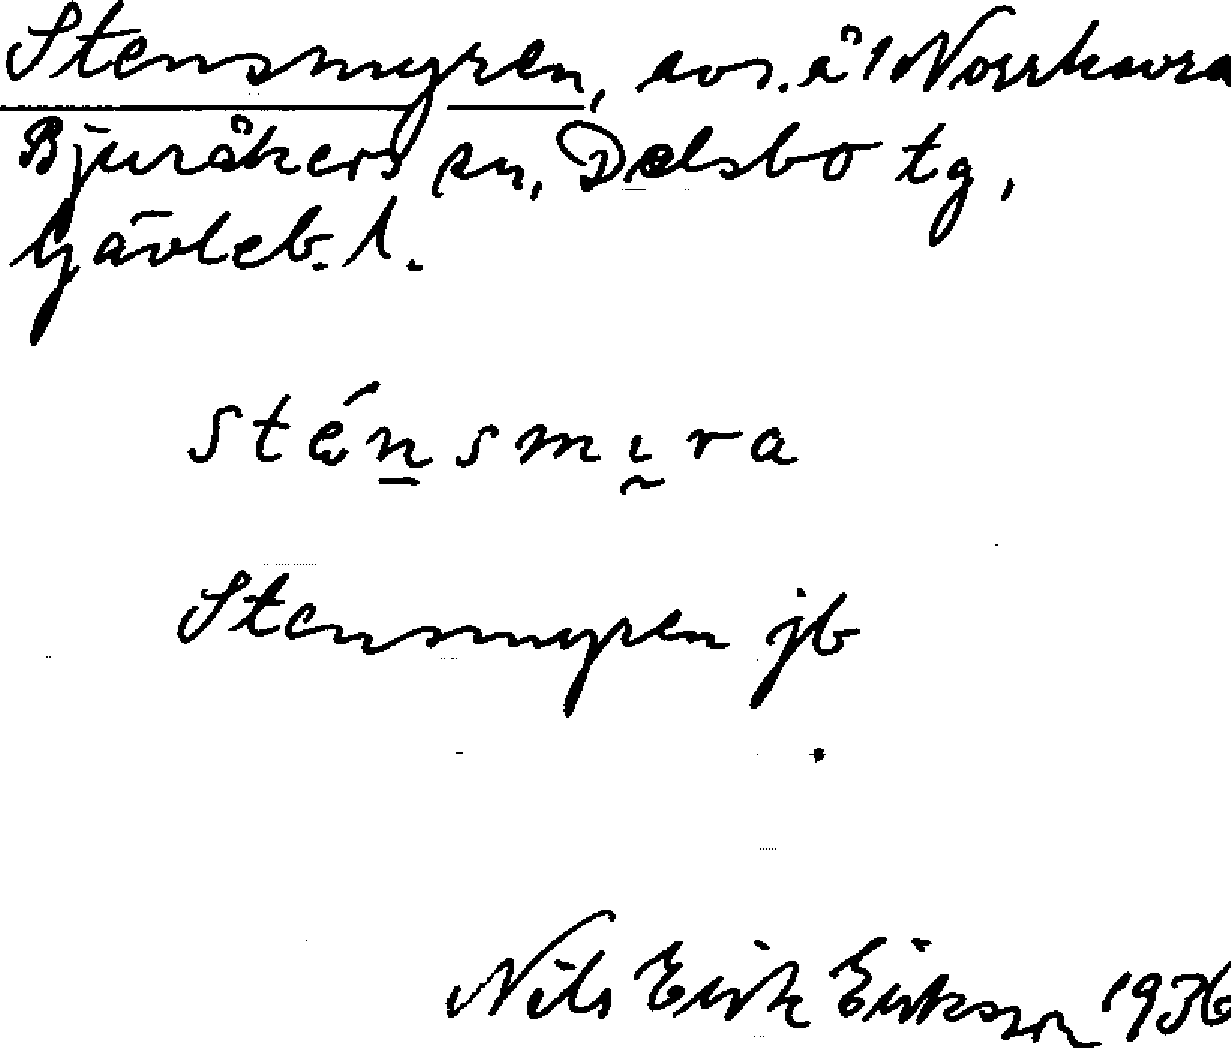 Stensmyren, avs. å 1 Norrhavra
Bjuråkers sn, Delsbo tg,
Gävleb. l.
sténsmıra
Stensmyren jb
Nils Erik Eriksson 1936